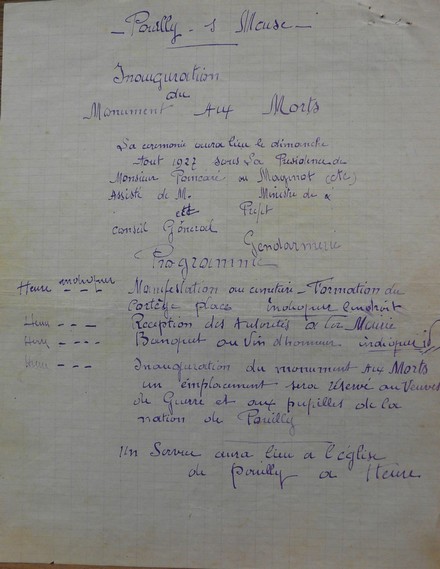 Pouilly - s Meuse -
Inauguration
du
Monument Aux Morts
La ceremonie aura lieu le dimanche
- Aout 1927 sous La Presidence de
Monsieur Poincaré ou Maginot (etc)
Assisté de M. Ministre de
et Préfet
Conseil Général
Gendarmerie
Programme
Heure indiquer Manifestation au cimetiere - Formation du
Cortège place indiquer l'endroit
Heure - - - Reception des Autorités a la Mairie
Heure - - - Banquet ou Vin d'honneur indiquer
Heure - - - Inauguration du monument Aux Morts
un emplacement sera réservé au Veuves
de Guerre et aux pupilles de la
nation de Pouilly
Un Service aura lieu a l'église
de pouilly a Heure